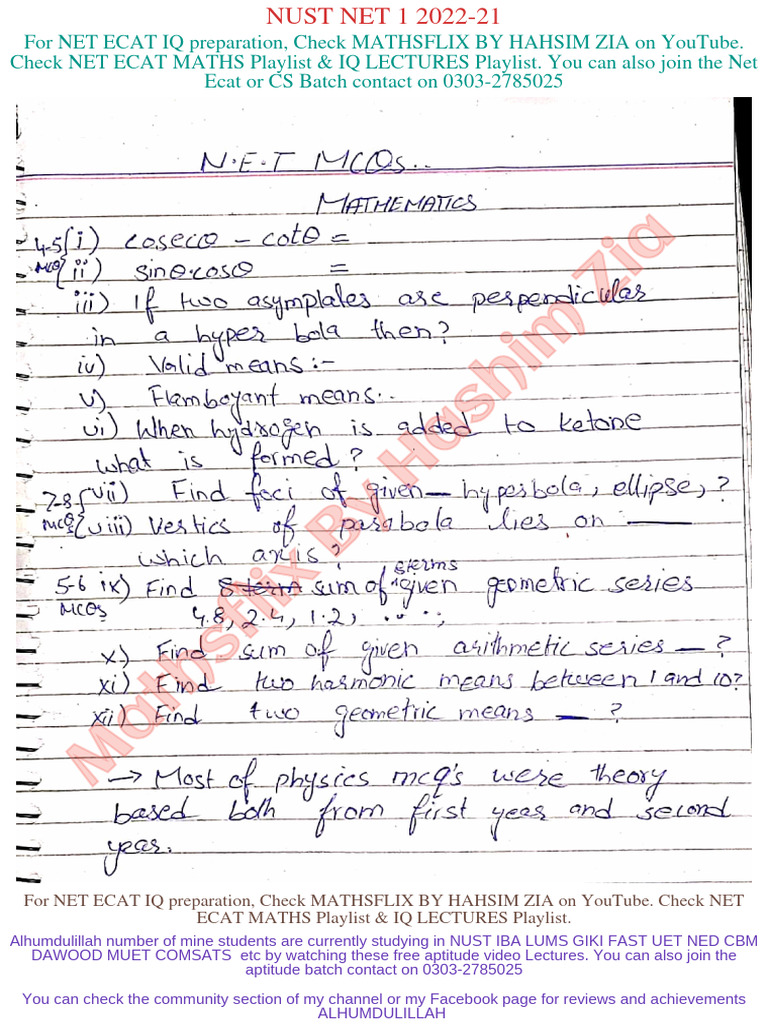 NUST NET 1 2022-21
For NET ECAT IQ preparation, Check MATHSFLIX BY HAHSIM ZIA on YouTube.
Check NET ECAT MATHS Playlist & IQ LECTURES Playlist. You can also join the Net
Ecat or CS Batch contact on 0303-2785025
N.E.T MCQs..
MATHEMATICS
4-5 i) cosecθ - cotθ =
MCQ ii) sinθ.cosθ =
iii) If two asymplates are perpendicular
in a hyper bola then?
iv) Valid means:-
v) Flamboyant means..
vi) When hydrogen is added to ketone
what is formed?
7-8 vii) Find foci of given — hyperbola, ellipse, ?
MCQs viii) Vertics of parabola lies on ——
which axis?
8terms
5-6 ix) Find 8 term sum of given geometric series
MCQs 4.8, 2.4, 1.2, ....,
x) Find sum of given arithmetic series — ?
xi) Find two harmonic means between 1 and 10?
xii) Find two geometric means — ?
→ Most of physics mcq's were theory
based both from first year and second
year.
Mathsflix By Hashim Zia
For NET ECAT IQ preparation, Check MATHSFLIX BY HAHSIM ZIA on YouTube. Check NET
ECAT MATHS Playlist & IQ LECTURES Playlist.
Alhumdulillah number of mine students are currently studying in NUST IBA LUMS GIKI FAST UET NED CBM
DAWOOD MUET COMSATS etc by watching these free aptitude video Lectures. You can also join the
aptitude batch contact on 0303-2785025
You can check the community section of my channel or my Facebook page for reviews and achievements
ALHUMDULILLAH